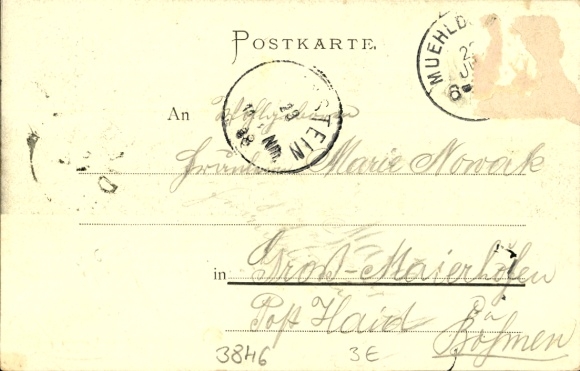 POSTKARTE.
MUEHLD
22
JU
6
STEIN
23
11-Nm.
98
An Wohlgeboren
Fräulein Marie Nowak
in Groß-Maierhöfen
Post Haid
Böhmen
3846 3E